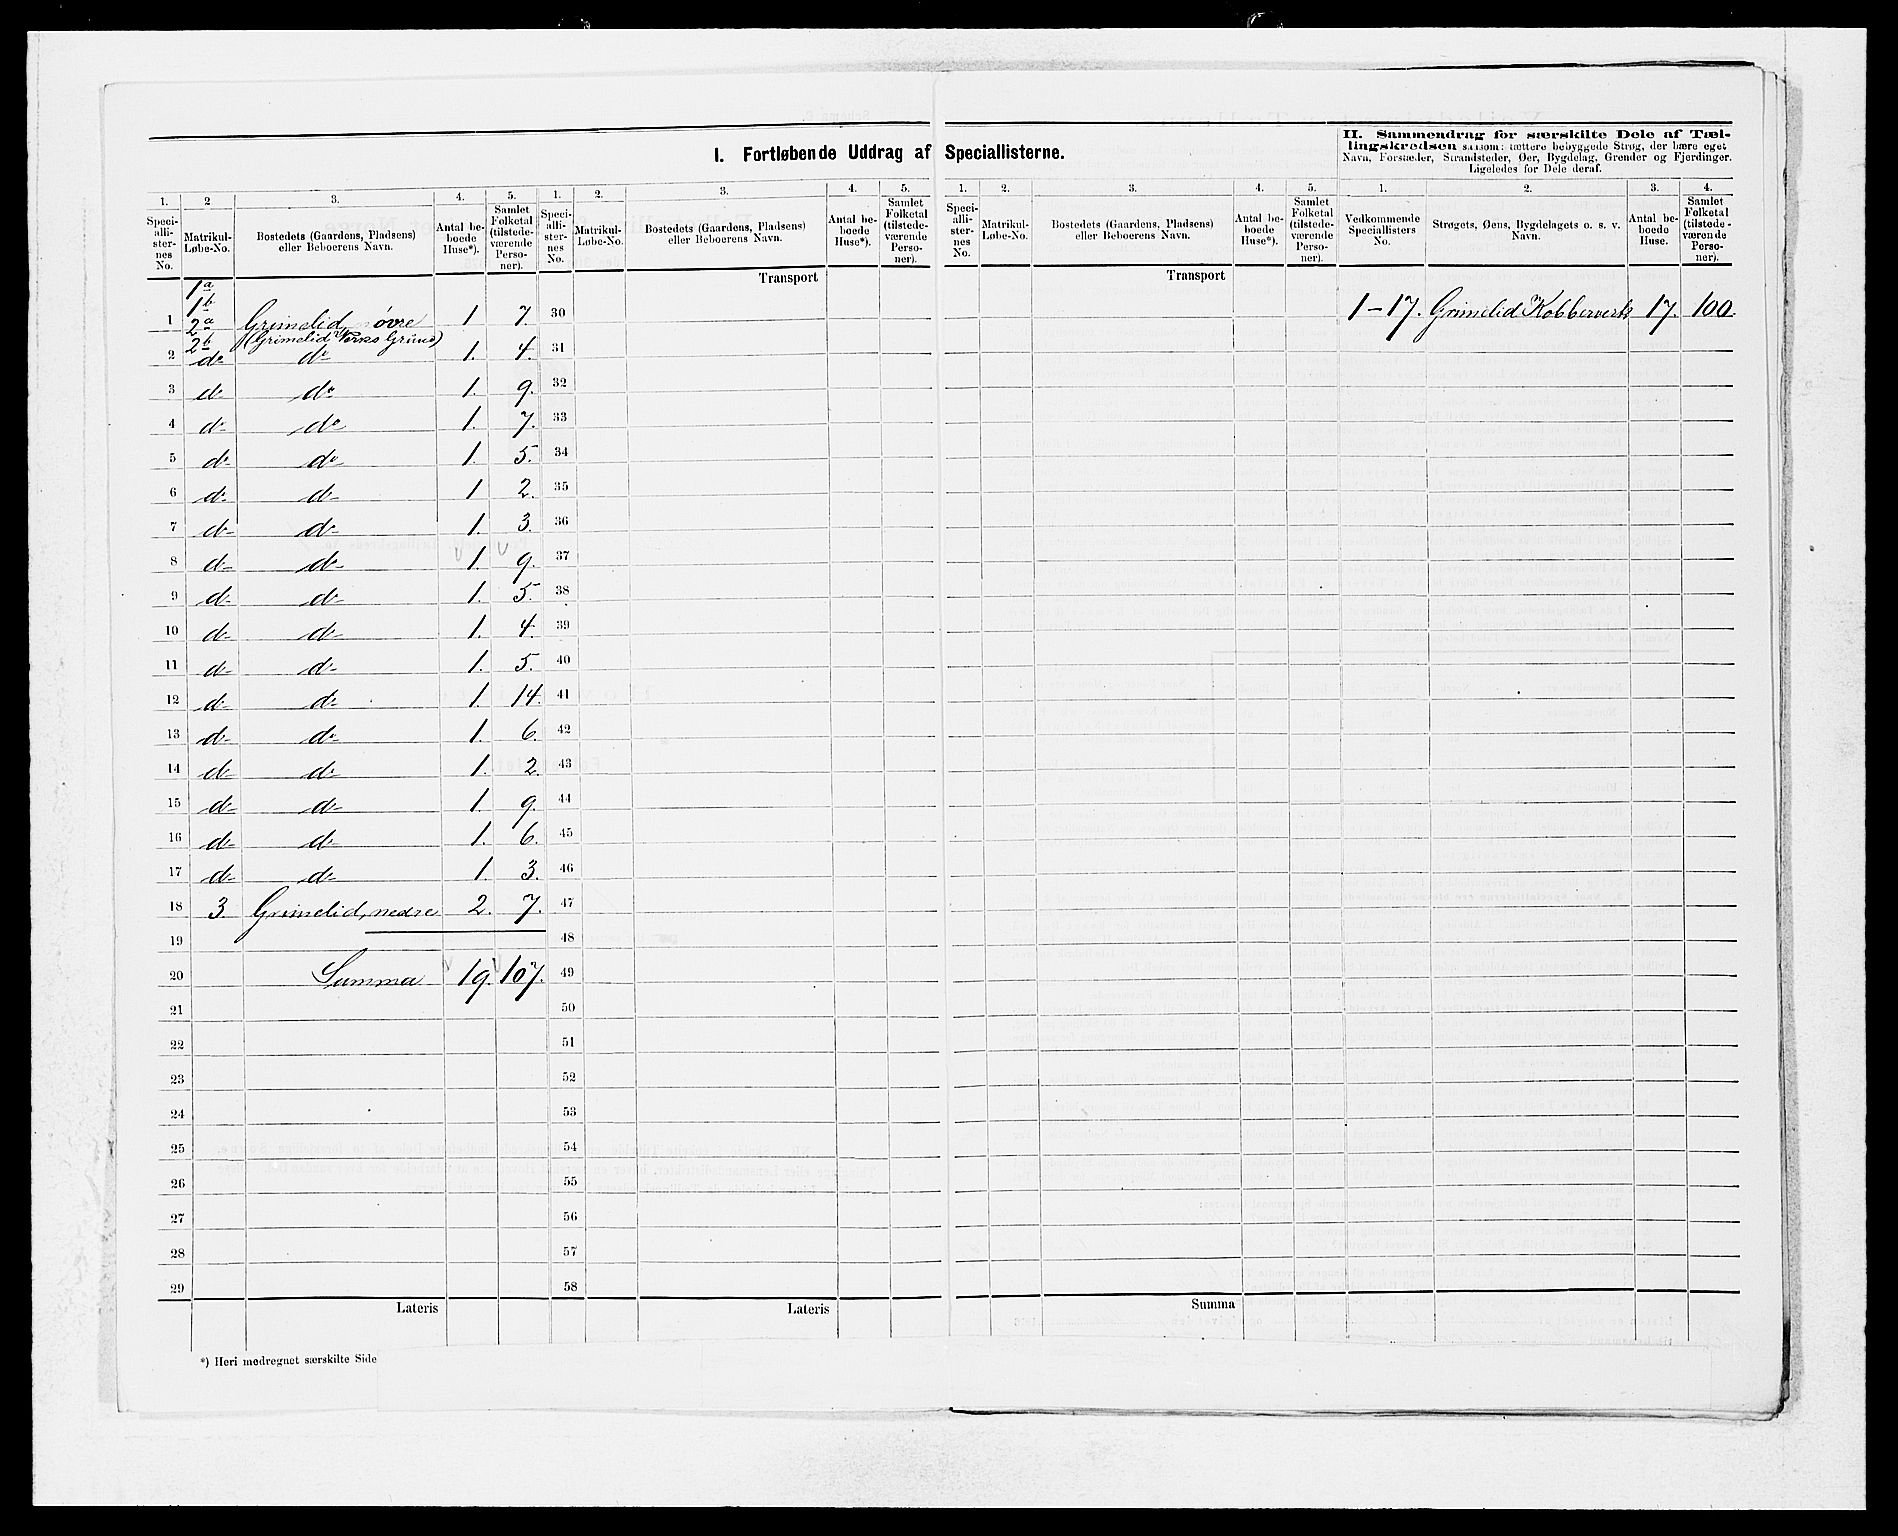 I. Fortløbende Uddrag af Speciallisterne.
II. Sammendrag for særskilte Dele af Tæl-
lingskredsen saasom: tættere bebyggede Strøg, der bære eget
Navn, Forstæder, Strandsteder, Øer, Bygdelag, Grender og Fjerdinger.
Ligeledes for Dele deraf.
1. 2 3. 4. 5. 1. 2. 3. 4. 5. 1. 2. 3. 4. 5. 1. 2. 3. 4.
Speci-alli-ster-nes No. Matrikul-Løbe-No. Bostedets (Gaardens, Pladsens) eller Beboerens Navn. Antal be-boede Huse*). Samlet Folketal (tilstede-værende Perso-ner).
Speci-alli-ster-nes No. Matrikul-Løbe-No. Bostedets (Gaardens, Pladsens) eller Beboerens Navn. Antal be-boede Huse*). Samlet Folketal (tilstede-værende Perso-ner).
Speci-alli-ster-nes No. Matrikul-Løbe-No. Bostedets (Gaardens, Pladsens) eller Beboerens Navn. Antal be-boede Huse*). Samlet Folketal (tilstede-værende Perso-ner).
Vedkommende Speciallisters No. Strøgets, Øens, Bygdelagets o. s. v. Navn. Antal be-boede Huse. Samlet Folketal (tilstede-værende Perso-ner).
Transport Transport
1a
1b
1 2a Grimelid, øvre 1 7. 30 1-17. Grimelid Kobberverk 17. 100.
2b (Grimelid Verks Grund)
2 do do 1. 4. 31
3 do do 1. 9. 32
4 do do 1. 7. 33
5 do do 1. 5. 34
6 do do 1 2. 35
7 do do 1. 3. 36
8 do do 1. 9. 37
9 do do 1. 5. 38
10 do do 1. 4. 39
11 do do 1. 5. 40
12 do do 1. 14. 41
13 do do 1. 6. 42
14 do do 1. 2. 43
15 do do 1. 9. 44
16 do do 1. 6. 45
17 do do 1. 3. 46
18 3. Grimelid, nedre 2. 7. 47
19 48
20 Summa 19. 107. 49
21 50
22 51
23 52
24 53
25 54
26 55
27 56
28 57
29 58
Lateris Lateris Summa
*) Heri medregnet særskilte Side